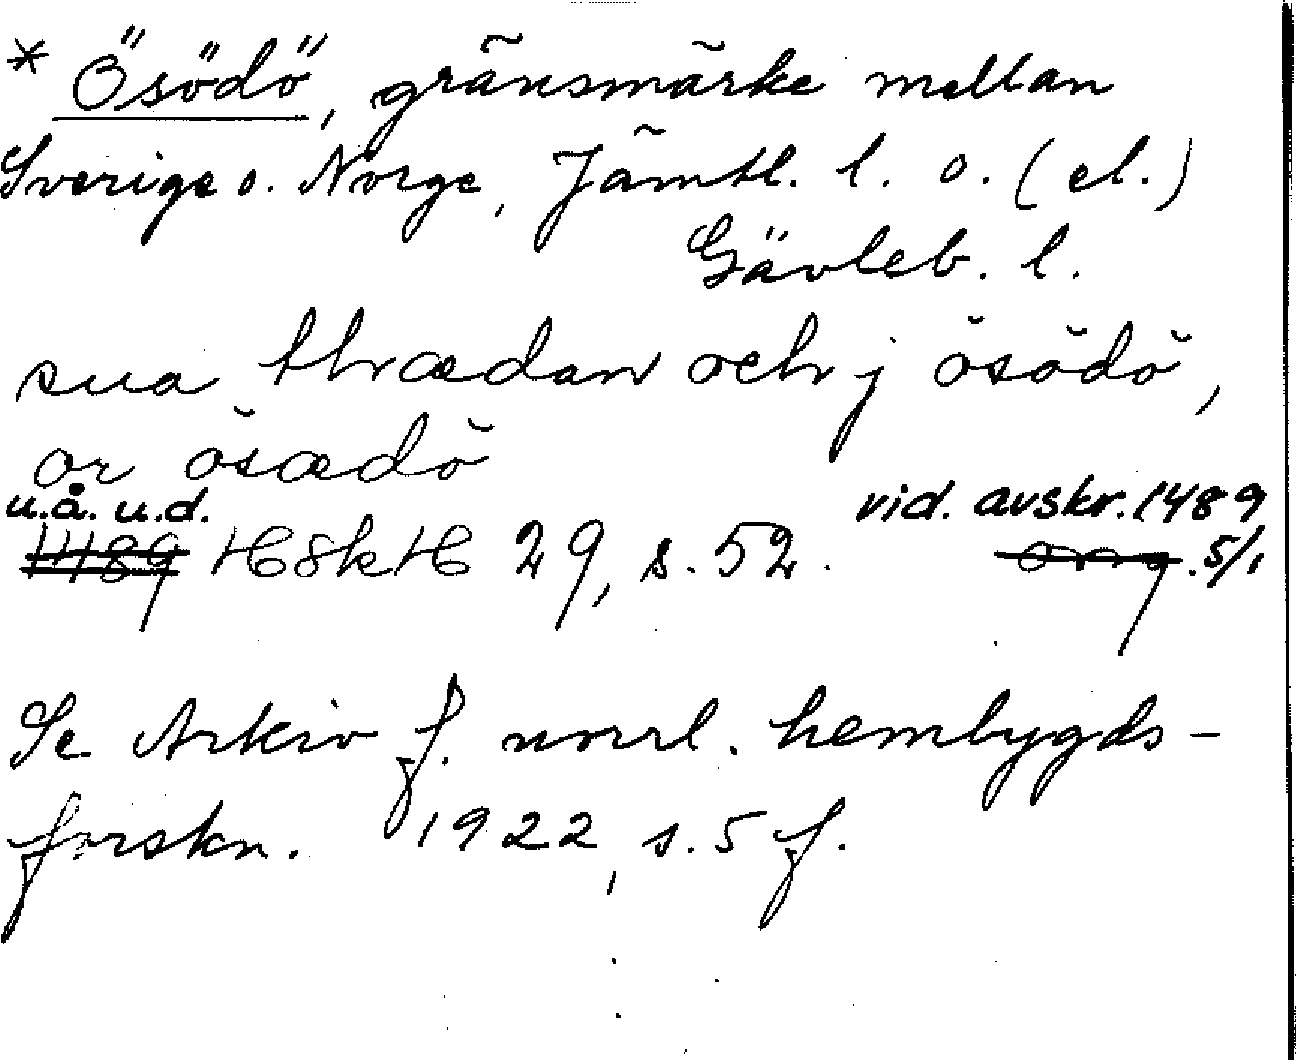 * Ösödö, gränsmärke mellan
Sverige o. Norge, Jämtl. l. o. (el.)
Gävleb. l.
sua thrædan och j ösödö,
or ösædö
u.å. u.d. vid. avskr. 1489
1489 HSkH 29, s. 52. orig. 5/1
Se Arkiv f. norrl. hembygds-
forskn. 1922, s. 5 f.